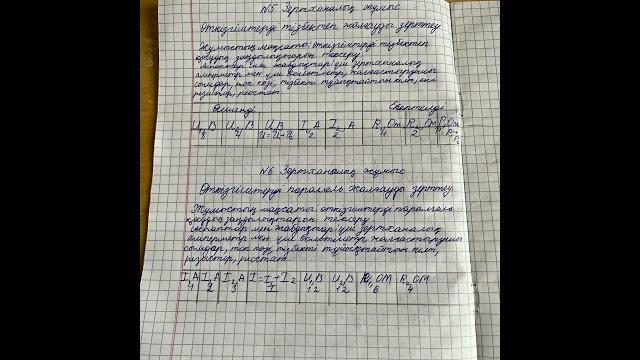 N5 Зертханалық жұмыс
Өткізгіштерді тізбектеп жалғауды зерттеу
Жұмыстың мақсаты: өткізгіштерді тізбектеп
қосудың заңдылықтарын тексеру.
мен жабдықтар: үш зертханалық
амперметр мен үш вольтметр, жалғастырғыш
сымдар, ток көзі, тізбекті тұйықтайтын кілт, екі
резистор, реостат.
Өлшенді Есептелді
U₁, В U₂, В U, В I₁, А I₂, А R₁, Ом R₂, Ом R, Ом
8 4 U=U₁+U₂ 2 2 4 2
N6 Зертханалық жұмыс
Өткізгіштерді параллель жалғауды зерттеу.
Жұмыстың мақсаты: өткізгіштерді параллель
қосудың заңдылықтарын тексеру.
Аспаптар мен жабдықтар: үш зертханалық
амперметр мен үш вольтметр, жалғастырғыш
сымдар, ток көзі, тізбекті тұйықтайтын кілт,
резистор, реостат.
I₁ A I₂ A I₂ A I=I₁+I₂ U₁ В U₂ В R₁ ОМ R₂ ОМ
1 2 3 12 12 6 4